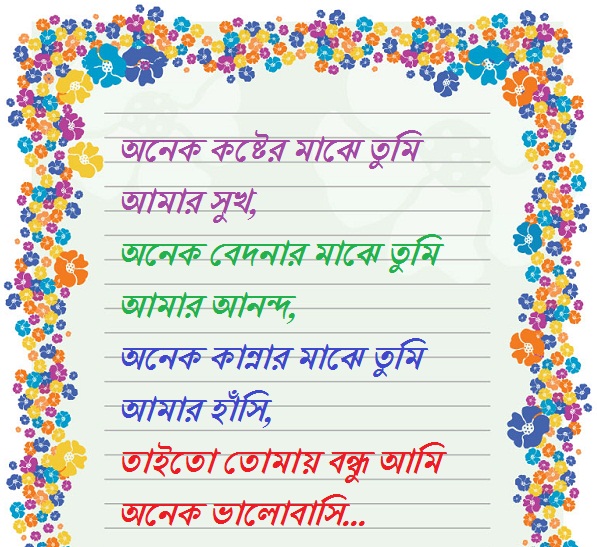 অনেক কষ্টের মাঝে তুমি
আমার সুখ,
অনেক বেদনার মাঝে তুমি
আমার আনন্দ,
অনেক কান্নার মাঝে তুমি
আমার হাঁসি,
তাইতো তোমায় বন্ধু আমি
অনেক ভালোবাসি...